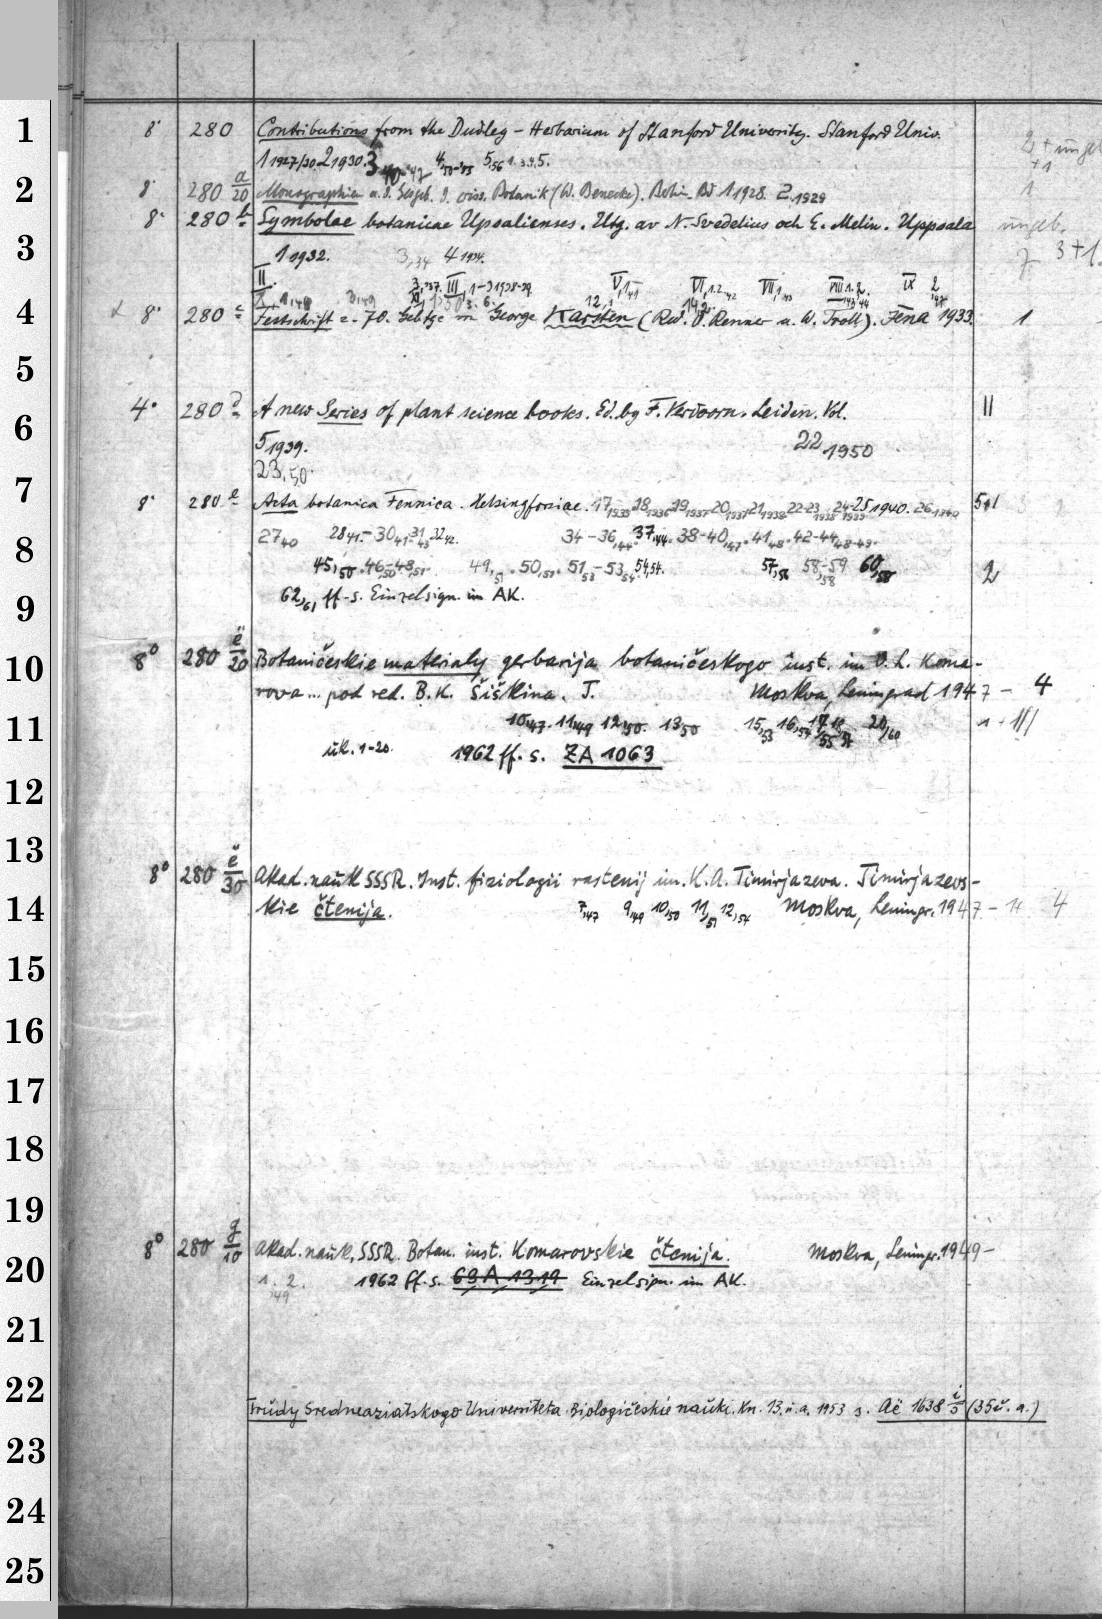 1 8° 280 Contributions from the Dudley-Herbarium of Stanford University. Stanford Univ.
1 1927/30. 2 1930. 3 40-47 4,50-'55 5,56 1.3.4.5. 2 + ungeb. +1
2 8° 280 a/20 Monographien a. d. Gesgeb. d. wiss. Botanik (W. Benecke). Berlin. Bd 1 1928. 2.1929 1
8° 280 b Symbolae botanicae Upsalienses. Utg. av N. Svedelius och E. Melin. Uppsala ungeb.
3 1 1932. 3,34 4 1934. 7 3+1.
II. 3,'37. III, 1-3 1938-39 V,1,41 VI,1.2,42 VII,1,43 VIII 1.2. 43/44 IX 2 '47
4 8° 280 c Festschrift z. 70. Gebtge von George Karsten (Red. O. Renner u. W. Troll). Jena 1933. 1
5
6 4° 280 d A new Series of plant science books. Ed. by F. Verdoorn. Leiden. Vol. II
5 1939. 22 1950
23,50.
7 8° 280 e Acta botanica Fennica. Helsingforsiae. 17,1935 18,1936 19,1937 20,1937 21,1938 22-23,1938 24,1939 25 1940. 26,1940 5+1
8 27 40 28 41.- 30,41 31,43 32 42. 34-36,44. 37,44. 38-40,47. 41,48. 42-44,48-49.
45,50. 46-48,51. 49,51. 50,51. 51-53,54. 54,54. 57,56 58-59,58 60,58 2
9 62,61 ff.s. Einzelsign. im AK.
10 8° 280 ë/20 Botaničeskie materialy gerbarija botaničeskogo inst. im. V. L. Koma-
rova... pod red. B. K. Šiškina. T. Moskva, Leningrad 1947 - 4
11 10,47. 11,49 12,50. 13,50 15,53 16,54 17,55 18,57 20,60 1 + III
uk. 1-20. 1962 ff. s. ZA 1063
12
13 8° 280 ë/30 Akad. nauk SSSR. Inst. fiziologii rastenij im. K. A. Timirjazeva. Timirjazevs-
14 kie čtenija. 7,47 9,49 10,50 11,51 12,54 Moskva, Leningr. 1947 - 4
15
16
17
18
19
20 8° 280 g/10 Akad. nauk, SSSR. Botan. inst. Komarovskie čtenija. Moskva, Leningr. 1949 -
1. 2. '49 1962 ff. s. 63 A 1319 Einzelsign. im AK.
21
22 Trudy Sredneaziatskogo Universiteta. Biologičeskie nauki. Kn. 13. u. a. 1953 s. Aë 1638 i/5 (35 u. a.)
23
24
25